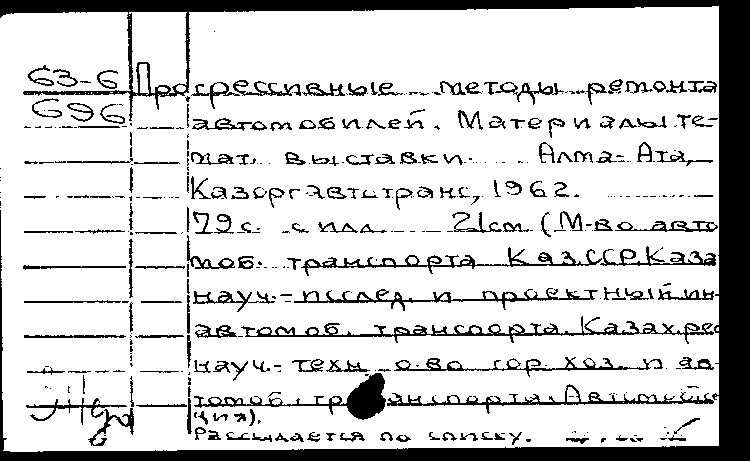 63-6 Прогрессивные методы ремонта
696
автомобилей. Материалы те-
мат. выставки. Алма-Ата,
Казоргавтотранс, 1962.
79с. с илл. 21см (М-во авто
моб. транспорта Каз.ССР. Каза
науч.-исслед. и проектный ин-
автомоб. транспорта. Казах. рес
науч.-техн о-во гор. хоз. и ав-
томоб. транспорта.
ция).
Рассылается по списку.